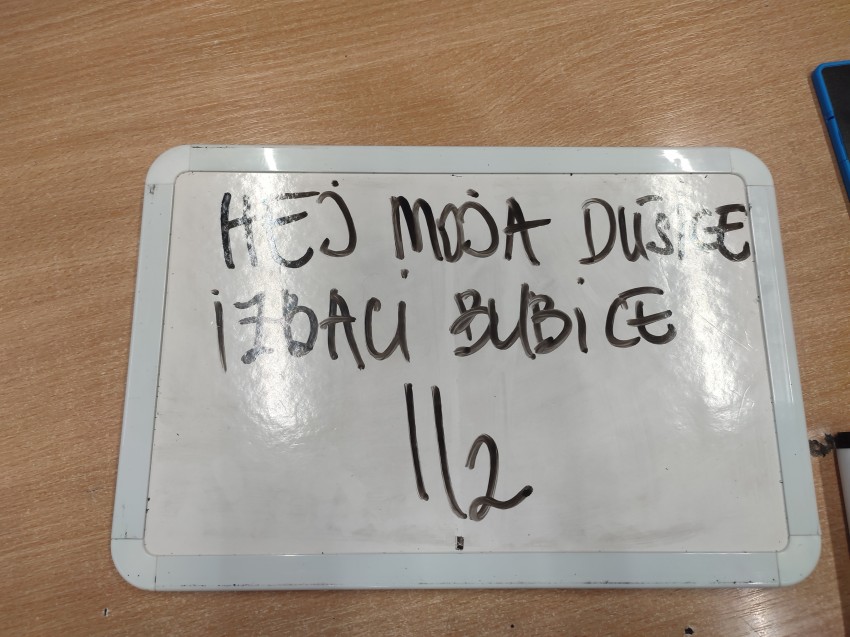 HEJ MOJA DUŠICE
IZBACI BUBICE
112